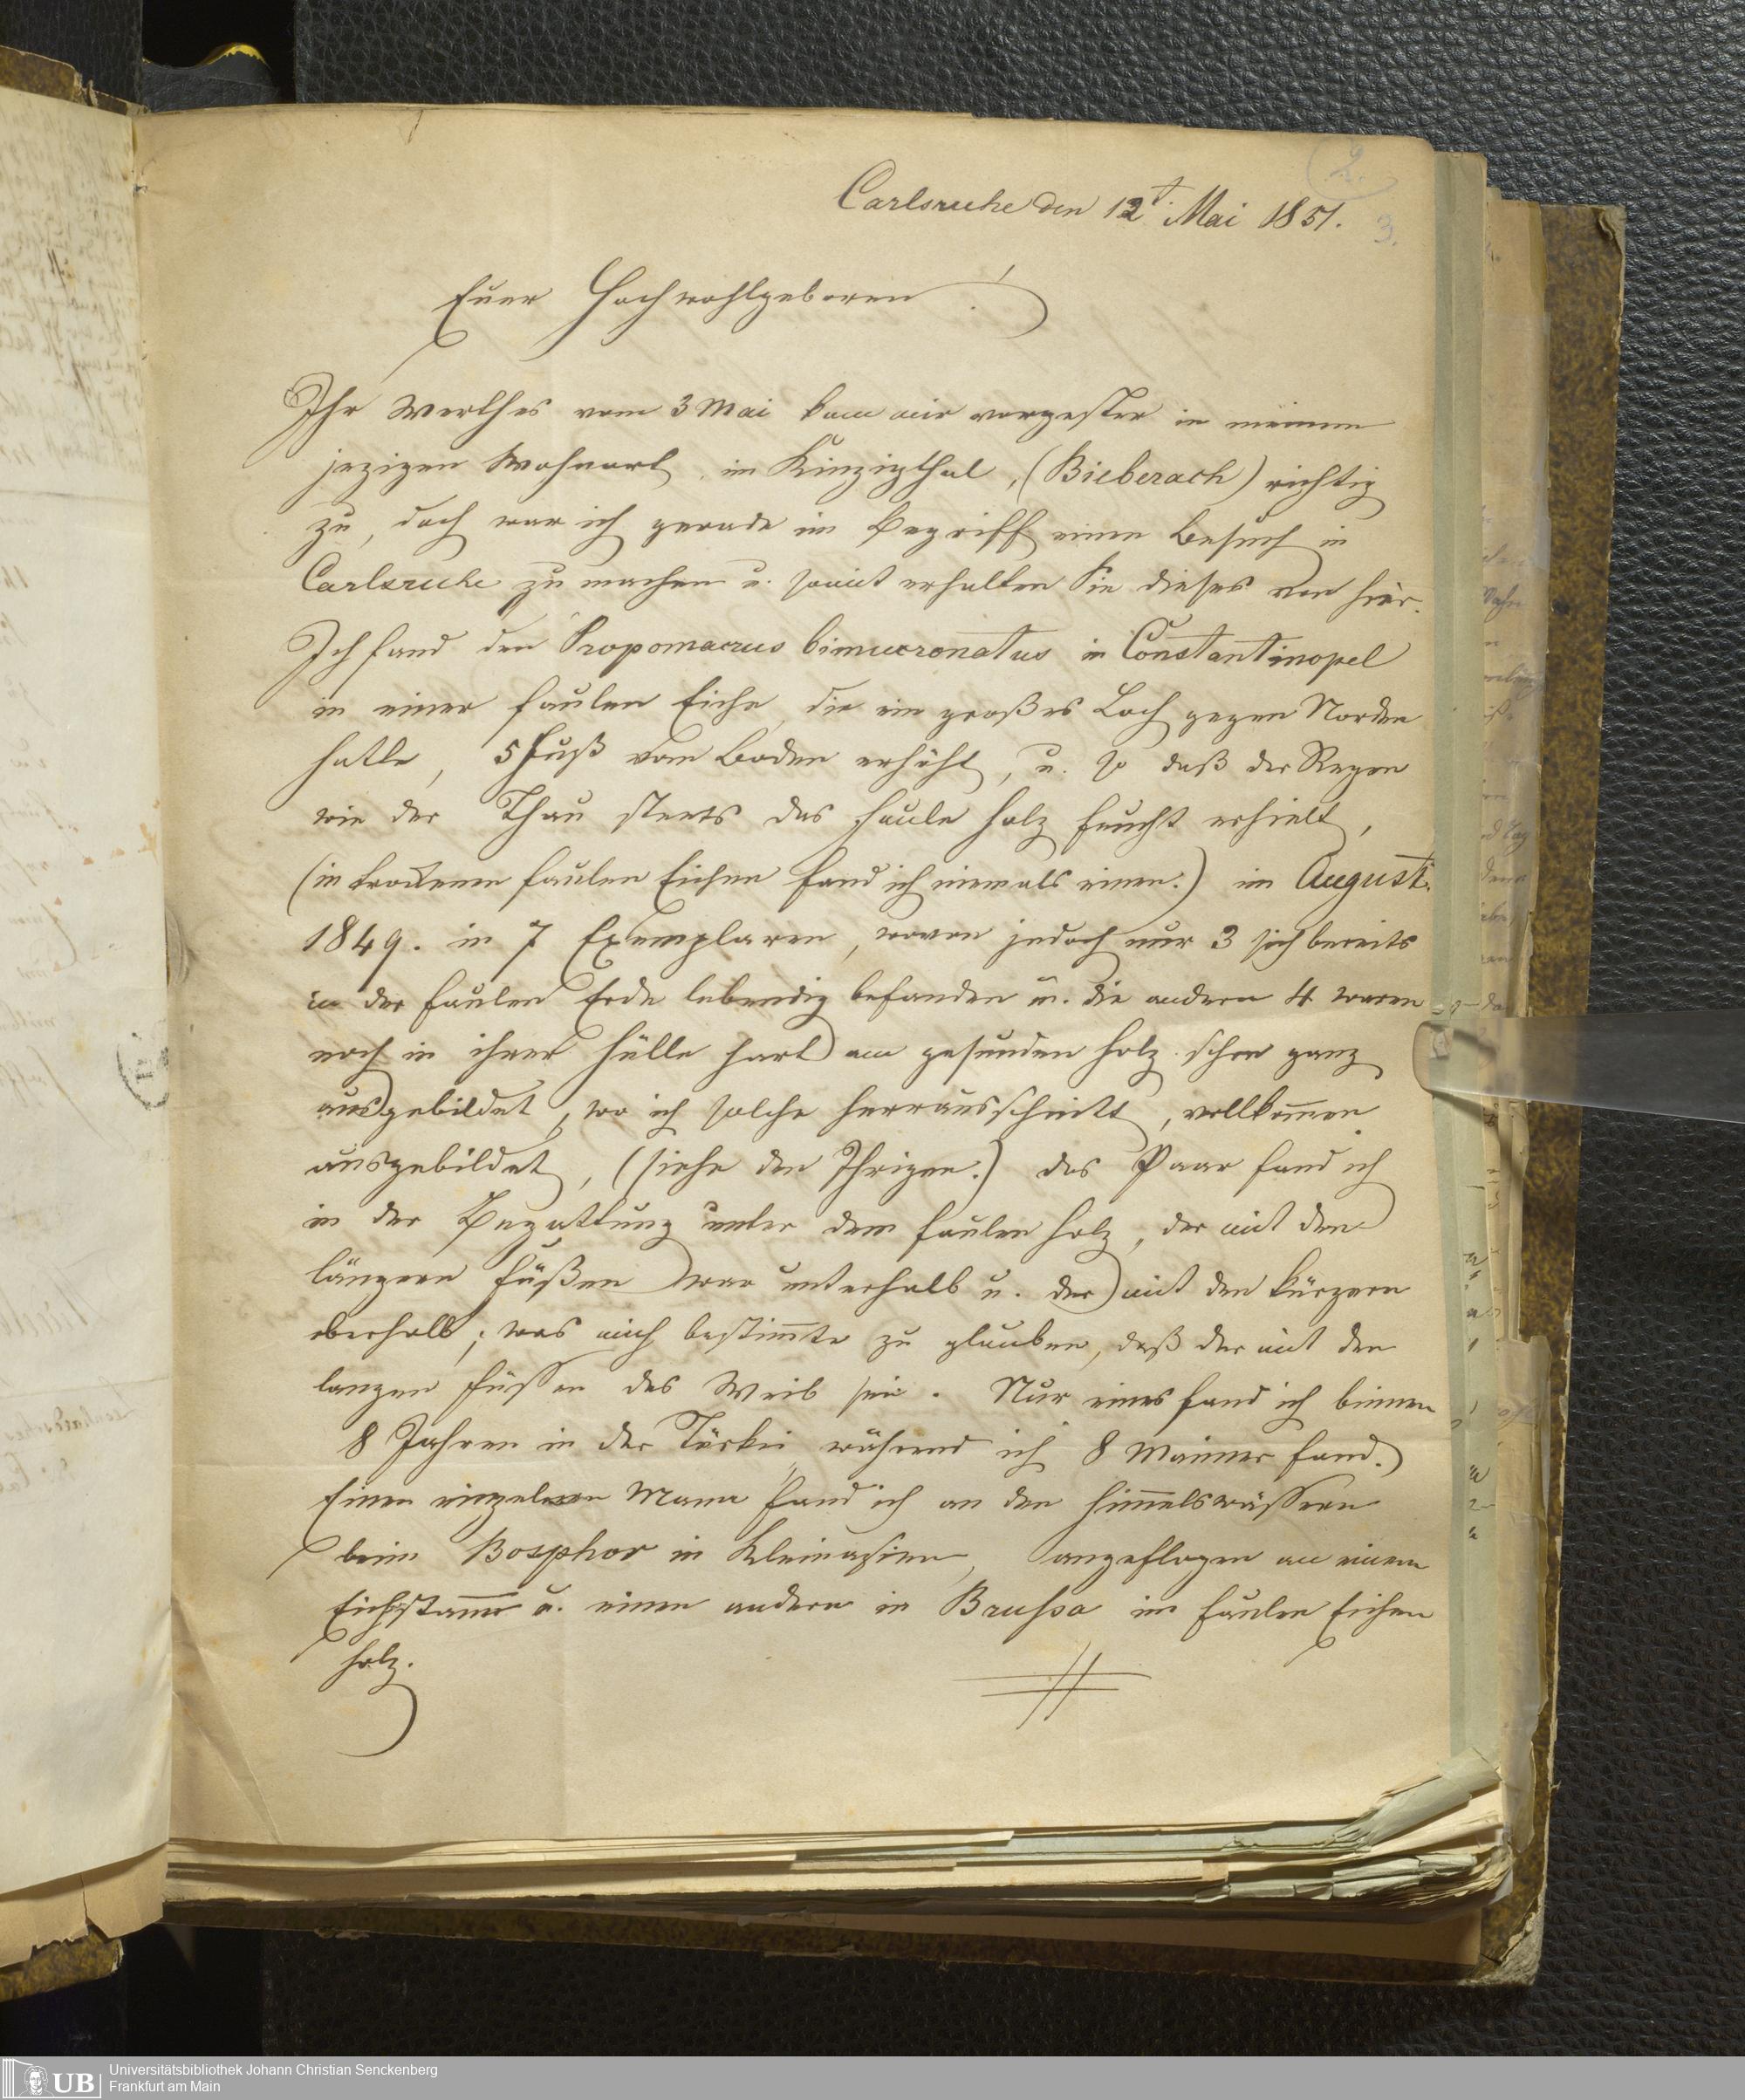 2.
Carlsruhe den 12t. Mai 1851.
3.
Euer Hochwohlgeboren!
Ihr Werthes vom 3 Mai kam mir vorgester in meinem
jezigen Wohnort im Kinzigthal, (Bieberach) richtig
zu, doch war ich gerade im Begriff einen Besuch in
Carlsruhe zu machen u. somit erhalten Sie dieses von hier.
Ich fand den Propomacrus bimucronatus in Constantinopel
in einer faulen Eiche, die ein großes Loch gegen Norden
hatte, 5 Fuß vom Boden erhöht, u. so daß der Regen
wie der Thau steets das faule Holz feucht erhielt,
(in trockenen faulen Eichen fand ich niemals einen.) im August.
1849. in 7 Exemplaren, wovon jedoch nur 3 sich bereits
in der faulen Erde lebendig befanden u. die andern 4 waren
noch in ihrer Hülle hart am gesunden Holz schon ganz
ausgebildet, wo ich solche herrausschnitt, vollkom̅en
ausgebildet, (siehe den Ihrigen.) das Paar fand ich
in der Begattung unter dem faulen Holz, der mit den
längern Füßen war unterhalb u. der mit den kürzern
oberhalb; was mich bestim̅te zu glauben, daß der mit den
langen Füssen das Weib sei. Nur eines fand ich binnen
8 Jahren in der Türkei, während ich 8 Männer fand.
Einen einzelnen Mann fand ich an den Him̅elswässern
beim Bosphor in Kleinasien, angeflogen an einem
Eichstam̅ u. einen andern in Brussa im faulen Eichen
holz.
UB
Universitätsbibliothek Johann Christian Senckenberg
Frankfurt am Main